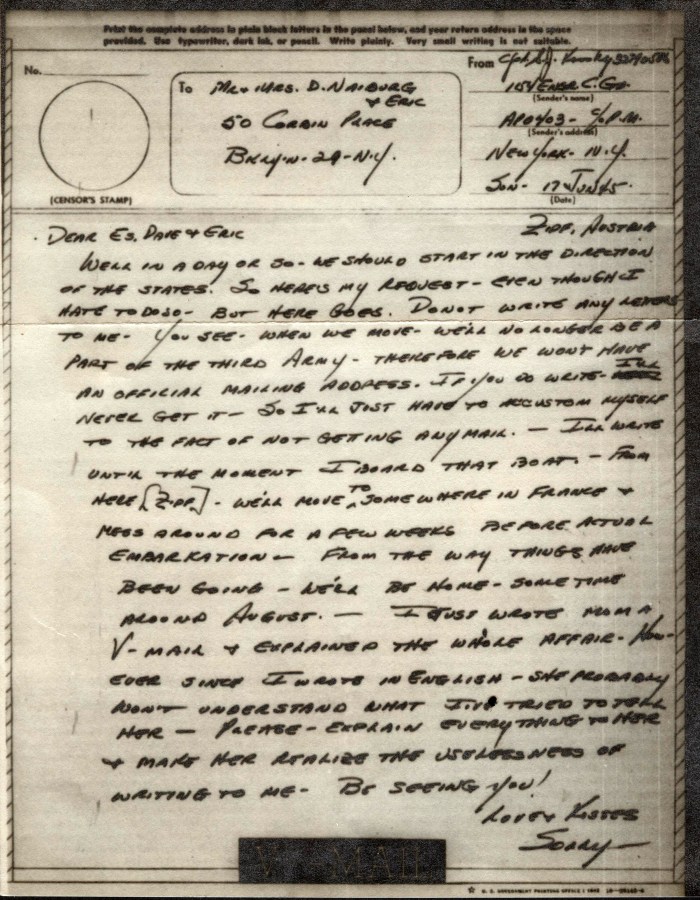 Print the complete address in plain block letters in the panel below, and your return address in the space
provided. Use typewriter, dark ink, or pencil. Write plainly. Very small writing is not suitable.
No.
(CENSOR'S STAMP)
To MR & MRS. D. NAIBURG
& ERIC
50 CORBIN PLACE
BKLYN-29-N.Y.
From
154 ENGR C. Co.
(Sender's name)
APO 403 - % P.M.
(Sender's address)
NEW YORK - N.Y.
SUN- 17 JUN 45-
(Date)
ZIPF, AUSTRIA
DEAR ES, DAVE & ERIC
WELL IN A DAY OR SO- WE SHOULD START IN THE DIRECTION
OF THE STATES. SO HERE'S MY REQUEST- EVEN THOUGH I
HATE TO DO SO- BUT HERE GOES. DO NOT WRITE ANY LETTERS
TO ME- YOU SEE- WHEN WE MOVE- WE'LL NO LONGER BE A
PART OF THE THIRD ARMY- THEREFORE WE WON'T HAVE
AN OFFICIAL MAILING ADDRESS. IF YOU DO WRITE- I'LL
NEVER GET IT- SO I'LL JUST HAVE TO ACCUSTOM MYSELF
TO THE FACT OF NOT GETTING ANY MAIL. - I'LL WRITE
UNTIL THE MOMENT I BOARD THAT BOAT. - FROM
HERE [ZIPF] - WE'LL MOVE TO SOMEWHERE IN FRANCE &
MESS AROUND FOR A FEW WEEKS BEFORE ACTUAL
EMBARKATION- FROM THE WAY THINGS HAVE
BEEN GOING - WE'LL BE HOME- SOMETIME
AROUND AUGUST. - I JUST WROTE MOM A
V-MAIL & EXPLAINED THE WHOLE AFFAIR- HOW-
EVER SINCE I WROTE IN ENGLISH - SHE PROBABLY
WON'T UNDERSTAND WHAT I'VE TRIED TO TELL
HER - PLEASE- EXPLAIN EVERYTHING TO HER
& MAKE HER REALIZE THE USELESSNESS OF
WRITING TO ME- BE SEEING YOU!
LOVE & KISSES
V-MAIL
U. S. GOVERNMENT PRINTING OFFICE